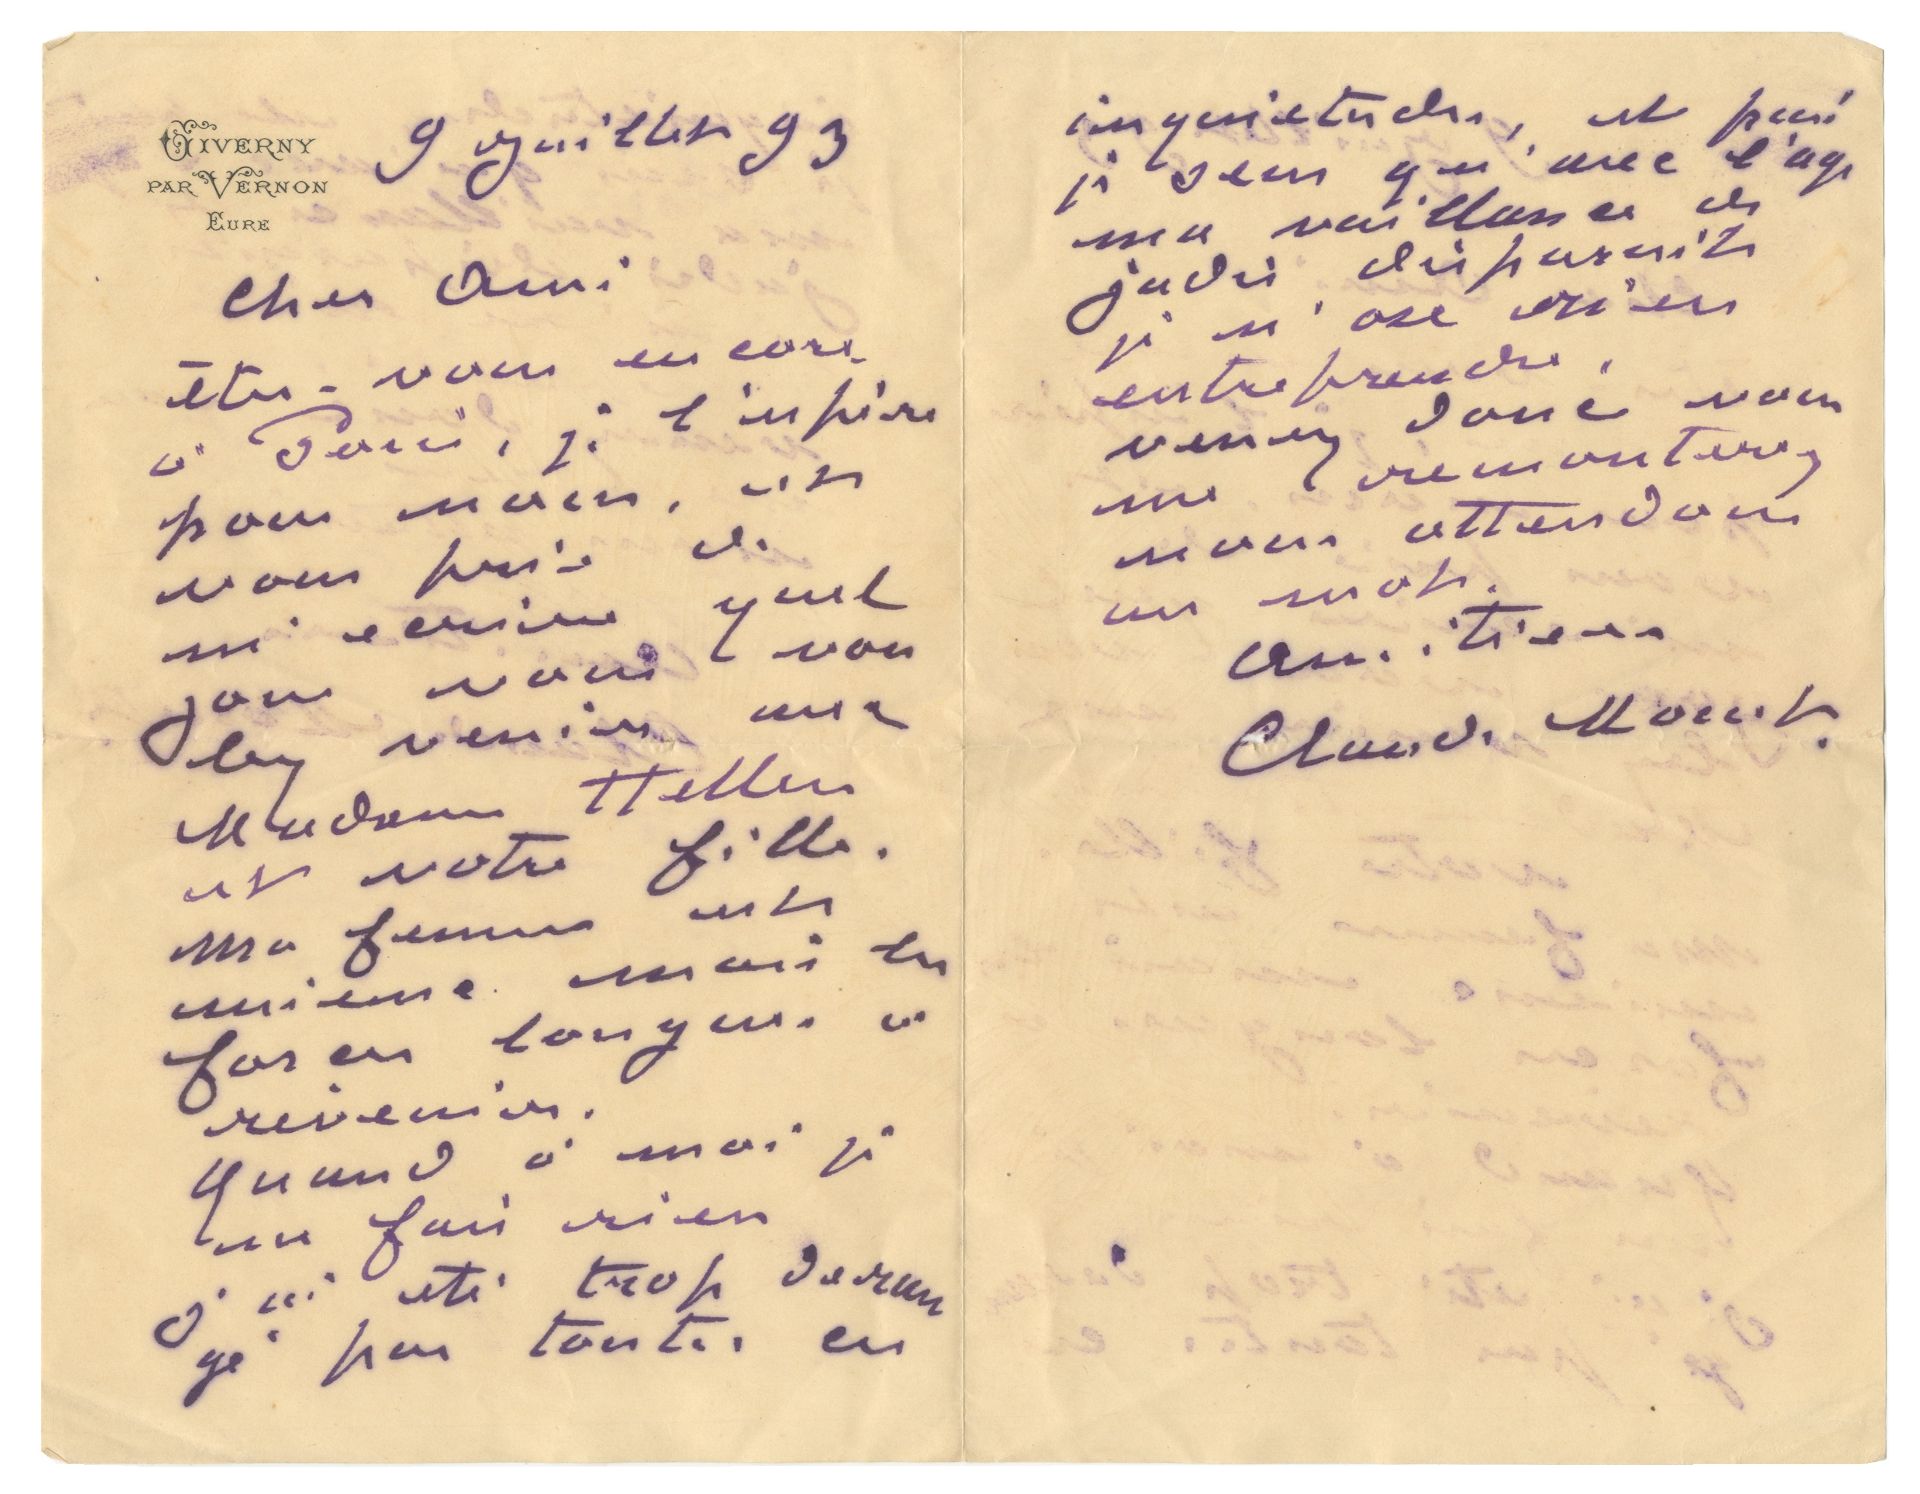 GIVERNY
PAR VERNON
EURE
9 juillet 93
Cher Ami
êtes-vous encore
à Paris, je l'espère
pour nous, et
vous prie de
m'écrire quel
jour vous vou
lez venir avec
Madame Helleu
et votre fille.
Ma femme est
mieux mais les
forces longues à
revenir.
Quand à moi je
ne fais rien
j'ai été trop déran
gé par toutes ces
inquiétudes, et puis
je sens qu'avec l'age
ma vaillance de
jadis disparait
je n'ose rien
entreprendre.
venez donc vous
me remonterez
nous attendons
un mot.
Amitiés
Claude Monet.